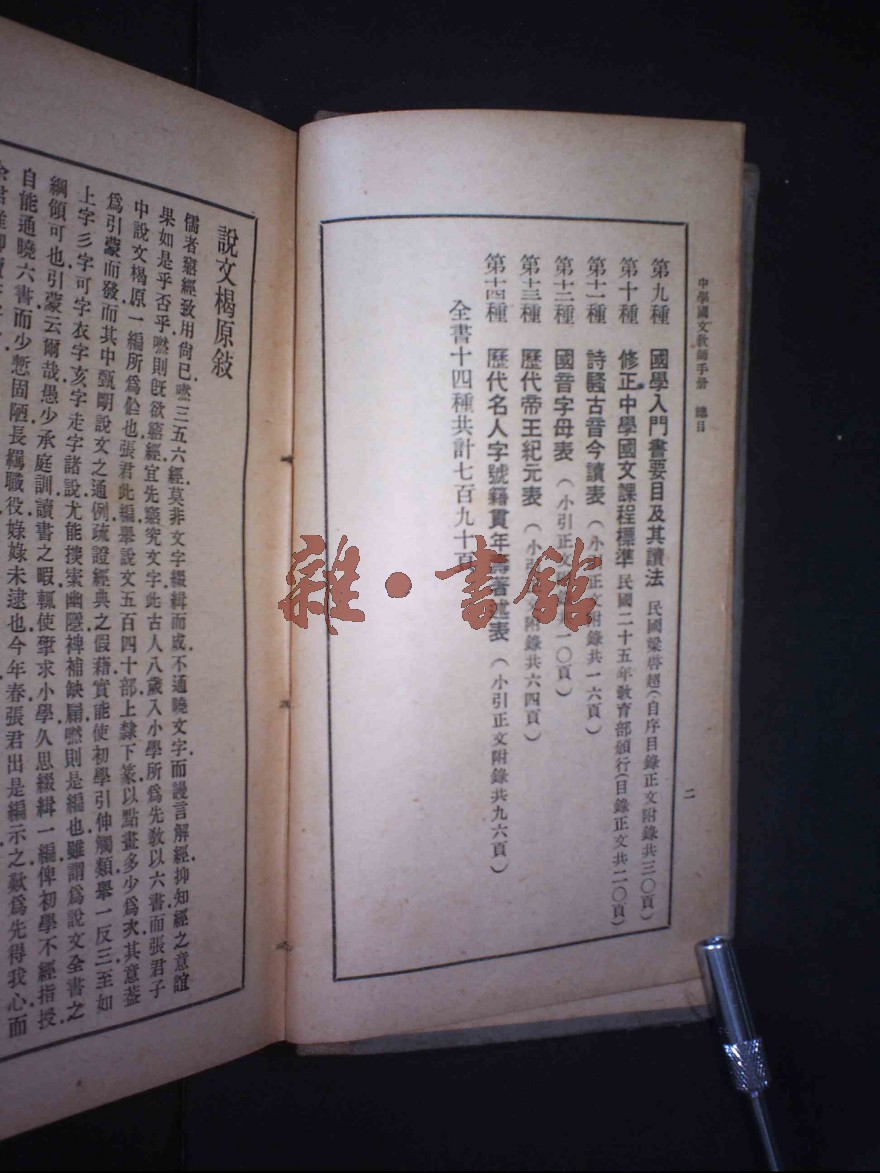 中學國文教師手册 總目
二
第九種 國學入門書要目及其讀法 民國梁啓超(自序目錄正文附錄共三〇頁)
第十種 修正中學國文課程標準 民國二十五年敎育部頒行(目錄正文共二〇頁)
第十一種 詩騷古音今讀表(小引正文附錄共一六頁)
第十二種 國音字母表(小引正文 一〇頁)
第十三種 歷代帝王紀元表(小引正文附錄共六四頁)
第十四種 歷代名人字號籍貫年壽著述表(小引正文附錄共九六頁)
全書十四種共計七百九十頁
雜·書館
說文楬原敍
儒者窮經致用尙已嘫三五六經莫非文字綴緝而成不通曉文字而謾言解經抑知經之意誼
果如是乎否乎嘫則旣欲窮經宜先窮究文字此古人八歲入小學所爲先敎以六書而張君子
中說文楬原一編所爲佁也張君此編舉說文五百四十部上隸下篆以點畫多少爲次其意葢
爲引蒙而發而其中甄明說文之通例疏證經典之假藉實能使初學引伸觸類舉一反三至如
上字彡字可字衣字亥字走字諸說尤能摉索幽隱裨補缺屚嘫則是編也雖謂爲說文全書之
綱領可也引蒙云爾哉愚少承庭訓讀書之暇輒使揅求小學久思綴緝一編俾初學不經指授
自能通曉六書而少慙固陋長羈職役婇婇未逮也今年春張君出是編示之歎爲先得我心而